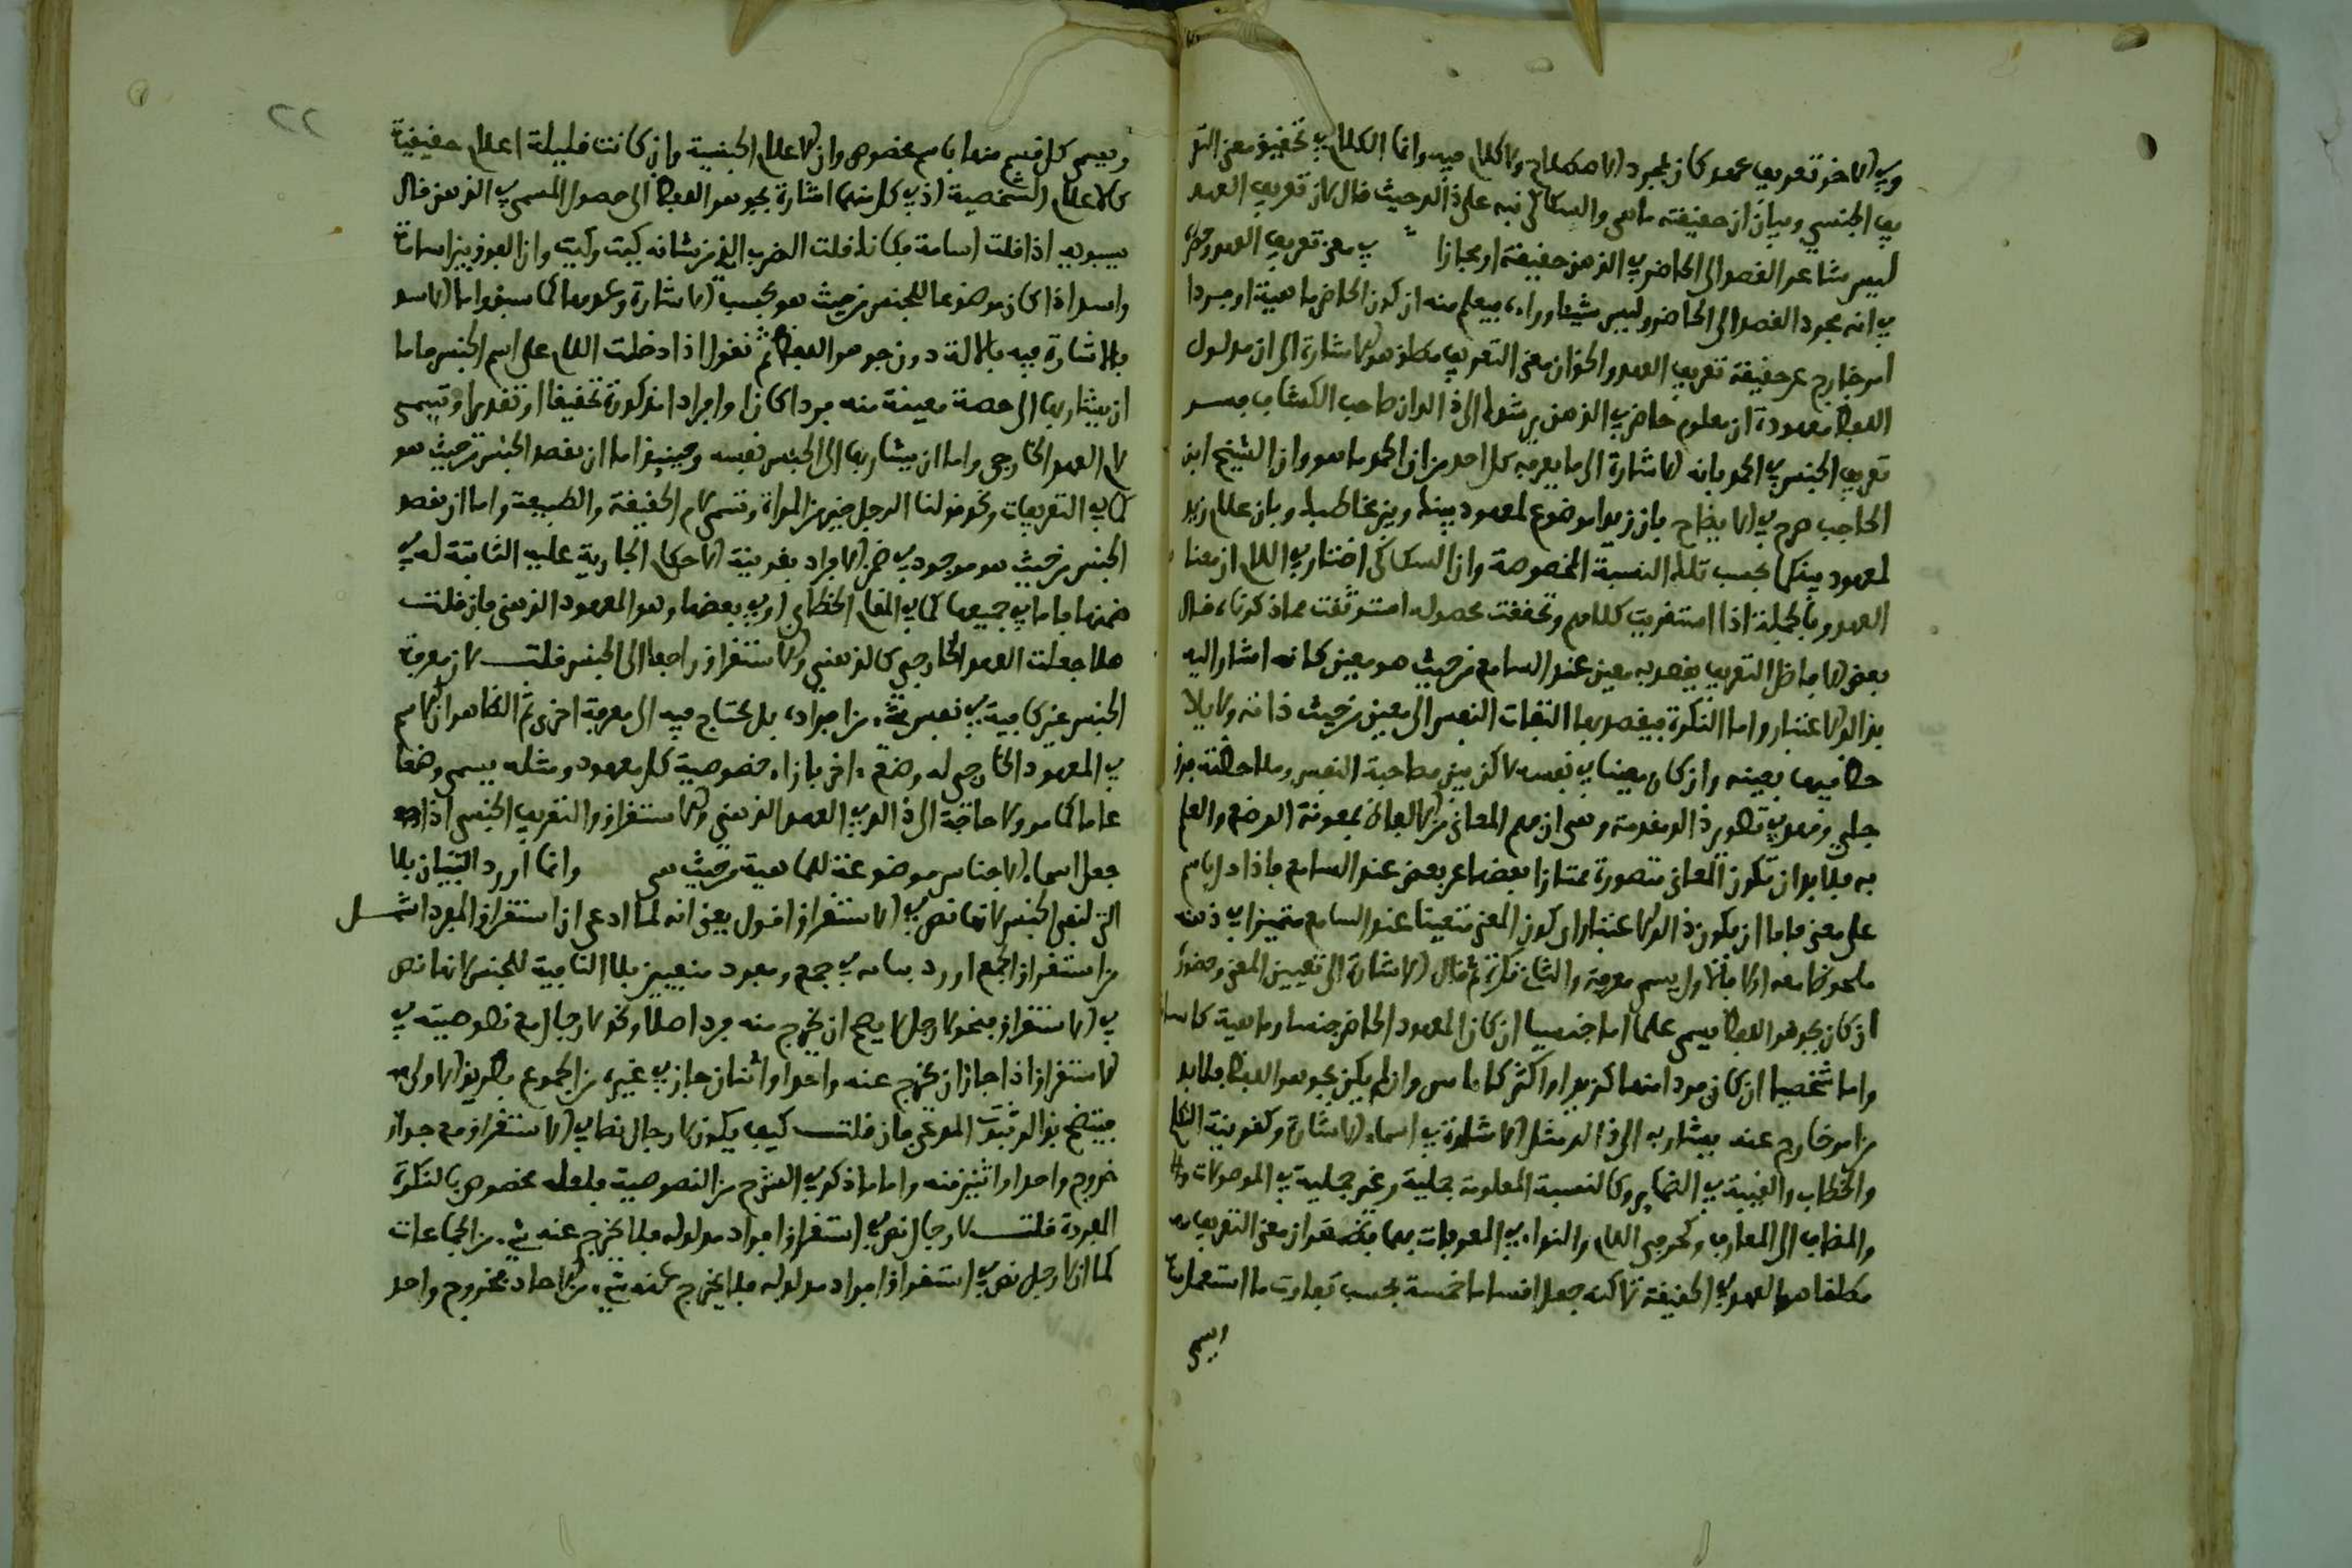 وفي الاخر تعريف عهد كان لمجرد الاصطلاح ولا كلام فيه وانما الكلام في تحقيق معنى التعر
يف الجنسي وبيان ان حقيقته ما هي والسكاكي نبه على ذلك حيث قال لان تعريف العهد
ليس شيا غير القصد الى الحاضر في الذهن حقيقة او مجازا في معنى تعريف العهد
في انه مجرد القصد الى الحاضر وليس شيا وراءه فيعلم منه ان كون الحاضر ماهية او فردا
امر خارج عن حقيقة تعريف العهد والحق ان معنى التعريف مطلق هو الاشارة الى ان مدلول
اللفظ معهود اي معلوم حاضر في الذهن يرشدك الى ذلك ان صاحب الكشاف فسر
تعريف الجنس في الحمد بانه الاشارة الى ما يعرفه كل احد من ان الحمد ما هو وان الشيخ ابن
الحاجب صرح في الايضاح بان زيدا موضوع لمعهود بينك وبين مخاطبك وبان غلام زيد
لمعهود بينكما بحسب تلك النسبة المخصوصة وان السكاكي اختار في اللام ان معناه
العهد وبالجملة اذا استقريت كلامهم وتحققت محصوله استوثقت مما ذكرناه قال
بعض الافاضل التعريف يقصد به معين عند السامع من حيث هو معين كانه اشار اليه
بذلك الاعتبار واما النكرة فيقصد بها التفات النفس الى معين من حيث ذاته ولا يلا
حظ فيها بعينه وان كان معينا في نفسه لاكن بين مصاحبة التعين وملاحظته فرق
جلي ونمهد في تصوير ذلك مقدمة وهي ان فهم المعاني من الالفاظ بمعونة الوضع والعلم
به فلا بد ان تكون المعاني متصورة ممتازا بعضها عن بعض عند السامع فاذا دل باسم
على معنى فاما ان يكون ذلك الاعتبار اي كون المعنى متعينا عند السامع متميزا في ذهنه
ملحوظا معه او لا فالاول يسمى معرفة والثاني نكرة ثم قال الاشارة الى تعيين المعنى وحضوره
ان كان بجوهر اللفظ يسمى علما اما جنسيا ان كان المعهود الحاضر جنسا وماهية كاسا
واما شخصيا ان كان فردا منها كزيد او اكثر وان لم يكن بجوهر اللفظ فلا بد
من امر خارج عنه يشار به الى ذلك مثل الاشارة في اسماء الاشارة وكقرينة التكلم
والخطاب والغيبة في الضماير وكالنسبة المعلومة جملية وغير جملية في الموصولات وا
والمضاف الى المعارف وكحرفي اللام والنداء في المعرفات بهما فقد ظهر ان معنى التعريف
مطلقا هو العهد في الحقيقة لاكنه جعل اقساما خمسة بحسب تفاوت ما استعمل فيه
ويسمى
٢٢
ويسمى كل قسم منها باسم مخصوص وان الاعلام الجنسية وان كانت قليلة اعلام حقيقية
كالاعلام الشخصية اذ في كل منهما اشارة بجوهر اللفظ الى حصول المسمى في الذهن قال
سيبويه اذا قلت اسامة فكانك قلت الضرب الذي من شانه كيت وكيت وان الفرق بين اسامة
واسد اذا كان موضوعا للجنس من حيث هو بحسب الاشارة وعدمها كما سبق واما الاسد
بالاشارة فيه بالالة دون جوهر اللفظ ثم نقول اذا دخلت اللام على اسم الجنس فاما
ان يشار بها الى حصة معينة منه فردا كان او افرادا مذكورة تحقيقا او تقديرا وتسمى
لام العهد الخارجي واما ان يشار بها الى الجنس نفسه وحينيذ اما ان يقصد الجنس من حيث هو
كما في التعريفات ونحو قولنا الرجل خير من المراة وتسمى لام الحقيقة والطبيعة واما ان يقصد
الجنس من حيث هو موجود في ضمن الافراد بقرينة الاحكام الجارية عليه الثابتة له في
ضمنها فاما في جميعها كما في المقام الخطابي او في بعضها وهو المعهود الذهني فان قلت
هلا جعلت العهد الخارجي كالذهني والاستغراق راجعا الى الجنس قلت لان معرفة
الجنس غير كافية في تعيين شيء من افراده بل يحتاج فيه الى معرفة اخرى ثم الظاهر ان الاسم
في المعهود الخارجي له وضع اخر بازاء خصوصية كل معهود ومثله يسمى وضعا
عاما كما مر ولا حاجة الى ذلك في العهد الذهني والاستغراق والتعريف الجنسي اذا
جعل اسماء الاجناس موضوعة للماهية من حيث هي وانما اورد البيان بلا
التي لنفي الجنس لانها نص في الاستغراق اقول يعني انه لما ادعى ان استغراق المفرد اشمل
من استغراق الجمع اورد بيانه في جمع ومفرد منفيين بلا النافية للجنس لانها نص
في الاستغراق فنحو لا رجل لا يصح ان يخرج منه فرد اصلا ونحو لا رجال مع نصوصيته في
الاستغراق اذا جاز ان يخرج عنه واحد او اثنان جاز في غيره من الجموع بطريق الاولى
فيتضح بذلك ثبوت المدعى فان قلت كيف يكون لا رجال نصا في الاستغراق مع جواز
خروج واحد او اثنين منه واما ما ذكر في الشرح من النصوصية فلعله مخصوص بالنكرة
المفردة قلت لا رجال نص في استغراق افراد مدلوله فلا يخرج عنه شيء من الجماعات
كما ان لا رجل نص في استغراق افراد مدلوله فلا يخرج عنه شيء من الاحاد فخروج واحد